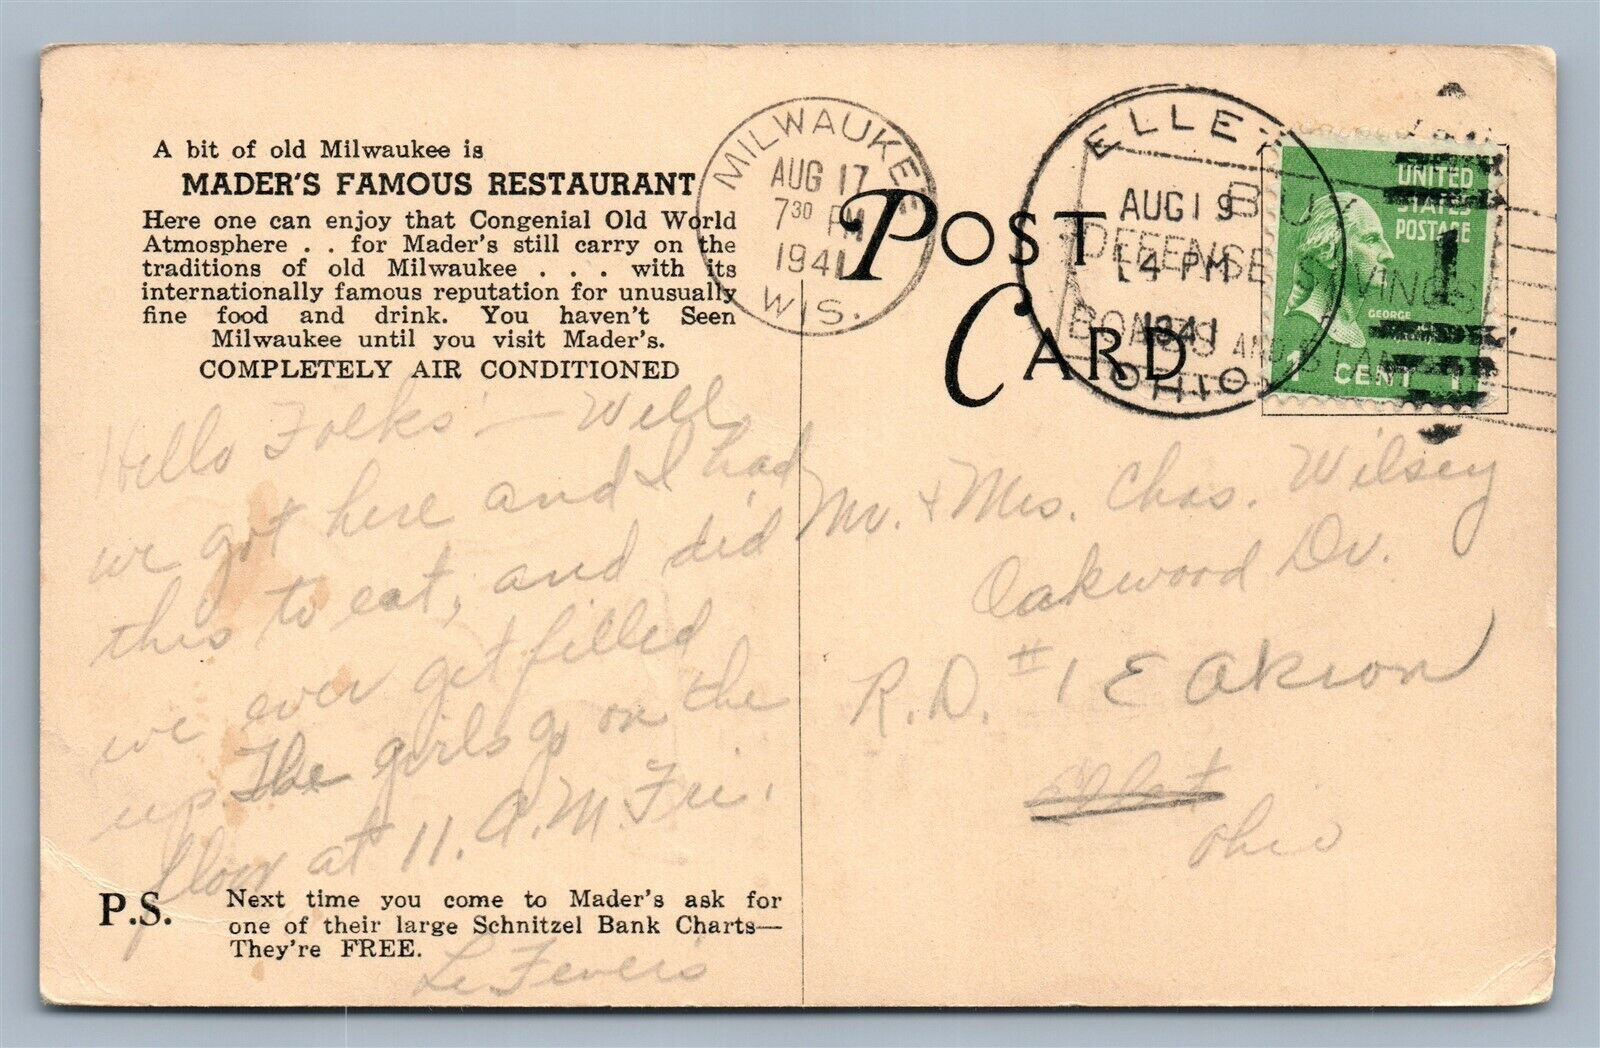 A bit of old Milwaukee is
MADER'S FAMOUS RESTAURANT
Here one can enjoy that Congenial Old World
Atmosphere . . for Mader's still carry on the
traditions of old Milwaukee . . . with its
internationally famous reputation for unusually
fine food and drink. You haven't Seen
Milwaukee until you visit Mader's.
COMPLETELY AIR CONDITIONED
Hello Folks - Well
we got here and I had
this to eat, and did
we ever get filled
up The girls go on the
floor at 11. A.M. Fri.
P.S. Next time you come to Mader's ask for
one of their large Schnitzel Bank Charts—
They're FREE.
Le Fevers
MILWAUKEE
AUG 17
7 30 PM
1941
WIS.
POST
CARD
ELLET
AUG 19
4 PM
1941
OHIO
BUY
DEFENSE SAVINGS
BONDS AND STAMPS
UNITED
STATES
POSTAGE
1
GEORGE
1 CENT 1
Mr. & Mrs. Chas. Wilsey
Oakwood Dr.
R.D. #1 E Akron
Ellet
Ohio